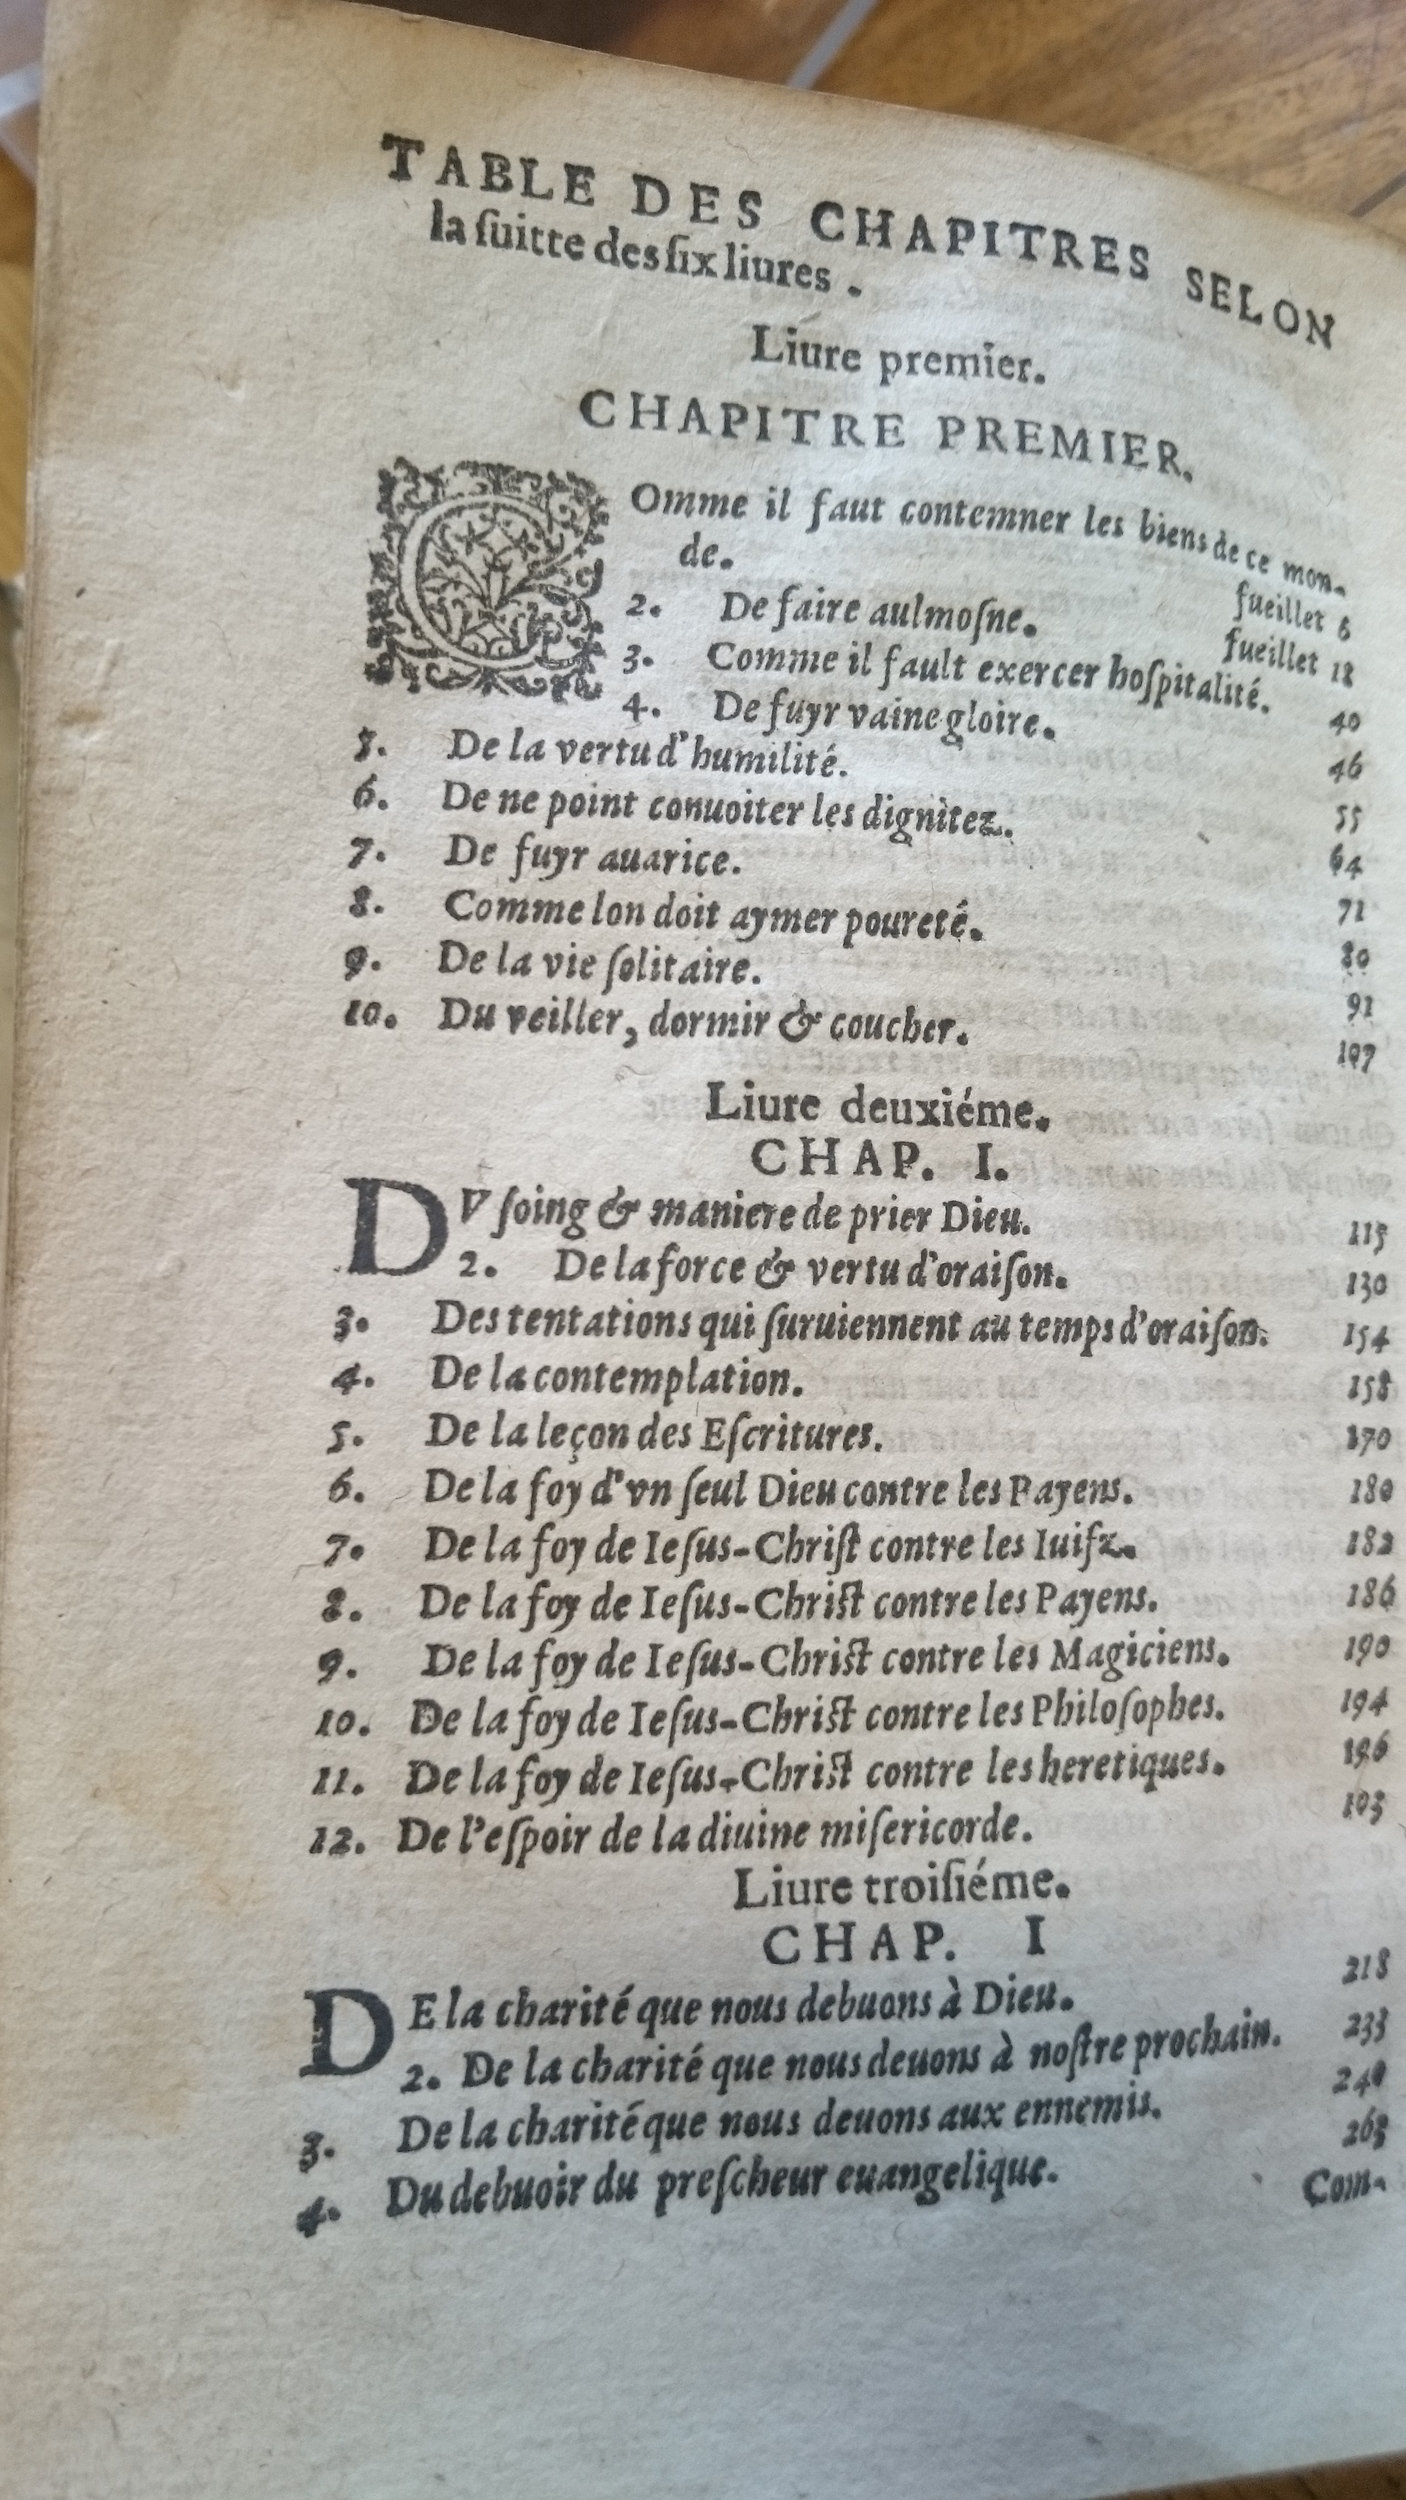 TABLE DES CHAPITRES SELON
la ſuitte des ſix liures .
Liure premier.
CHAPITRE PREMIER.
COmme il faut contemner les biens de ce mon-
de. fueillet 6
2. De faire aulmoſne. fueillet 18
3. Comme il fault exercer hoſpitalité. 40
4. De fuyr vaine gloire. 46
5. De la vertu d'humilité. 55
6. De ne point conuoiter les dignitez. 64
7. De fuyr auarice. 71
8. Comme lon doit aymer poureté. 80
9. De la vie ſolitaire. 91
10. Du veiller, dormir & coucher. 107
Liure deuxiéme.
CHAP. I.
DV ſoing & maniere de prier Dieu. 115
2. De la force & vertu d'oraiſon. 130
3. Des tentations qui ſuruiennent au temps d'oraiſon. 154
4. De la contemplation. 158
5. De la leçon des Eſcritures. 170
6. De la foy d'vn ſeul Dieu contre les Payens. 180
7. De la foy de Ieſus-Chriſt contre les Iuifz. 182
8. De la foy de Ieſus-Chriſt contre les Payens. 186
9. De la foy de Ieſus-Chriſt contre les Magiciens. 190
10. De la foy de Ieſus-Chriſt contre les Philoſophes. 194
11. De la foy de Ieſus-Chriſt contre les heretiques. 196
12. De l'eſpoir de la diuine miſericorde. 103
Liure troiſiéme.
CHAP. I
DE la charité que nous debuons à Dieu. 218
2. De la charité que nous deuons à noſtre prochain. 233
3. De la charité que nous deuons aux ennemis. 240
4. Du debuoir du preſcheur euangelique.
Com-